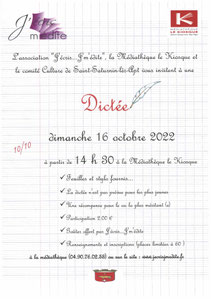 J'Écris
m'édite
K
LE KIOSQUE
L'association "J'écris...J'm'édite", la Médiathèque le Kiosque et
le comité Culture de Saint-Saturnin-lès-Apt vous invitent à une
Dictée
dimanche 16 octobre 2022
10/10
à partir de 14 h 30 à la Médiathèque le Kiosque
✓ Feuilles et stylo fournis...
✓ La dictée n'est pas prévue pour les plus jeunes
✓ Une récompense pour le ou la plus méritant (e)
✓ Participation 2.00 €
✓ Goûter offert par J'écris...J'm'édite
✓ Renseignements et inscriptions (places limitées à 60 )
à la médiathèque (04.90.76.02.58) ou sur le site : www.jecrisjmedite.fr